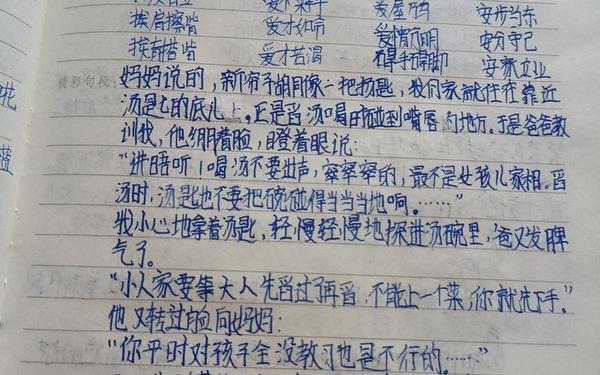 爱不释手 爱屋 安步当车
挨肩擦背 爱才如命 爱憎分明 安分守己
爱才若渴 碍手碍脚 安家立业
精彩句段:
妈妈说的,新帘子胡同像一把汤匙,我们家就住在靠近
汤匙的底儿上。正是舀汤喝时碰到嘴唇的地方。于是爸爸教
训我,他绷着脸,瞪着眼说:
“讲唔听!喝汤不要出声,窣窣窣的,最不是女孩儿家相。舀
汤时,汤匙也不要把碗碰得当当当地响。……”
我小心地拿着汤匙,轻慢轻慢地探进汤碗里,爸又发脾
气了。
“小人家要等大人先舀过了再舀,不能上一个菜,你就先下手。”
他又转过脸向妈妈:
“你平时对孩子全没教习也是不行的。……”